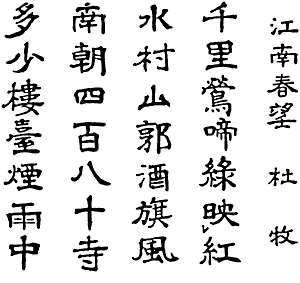 江南春望 杜牧
千里鶯啼綠映紅
水村山郭酒旗風
南朝四百八十寺
多少樓臺煙雨中